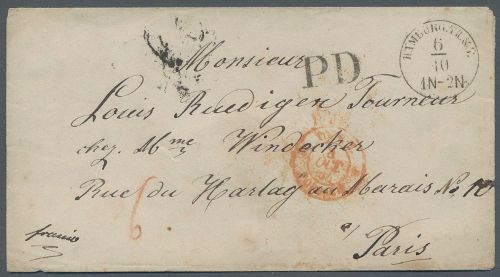 Monsieur
PD
HAMBURG TH. & T.
6
10
1N-2N
Louis Ruedigen Tourneur
chez Mme Windecker
Rue du Harlay au Marais No. 10
6
franco
à Paris